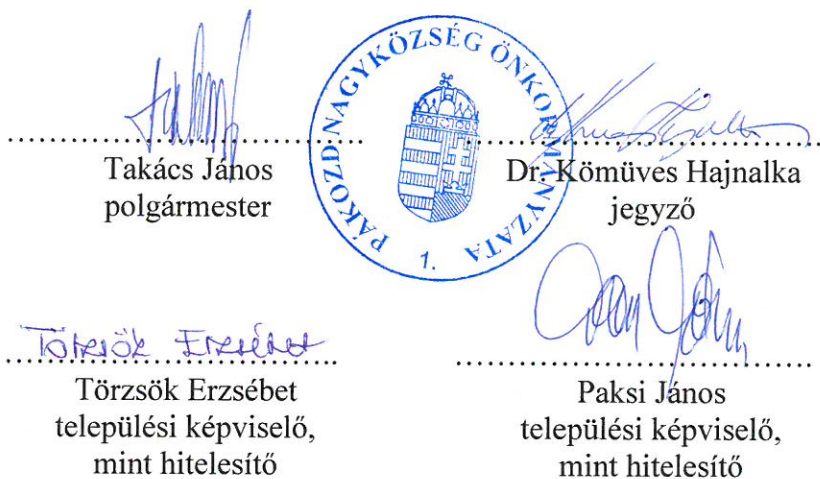 PÁKOZD NAGYKÖZSÉG ÖNKORMÁNYZATA
1.
Takács János
polgármester
Dr. Kömüves Hajnalka
jegyző
Törzsök Erzsébet
Törzsök Erzsébet
települési képviselő,
mint hitelesítő
Paksi János
települési képviselő,
mint hitelesítő